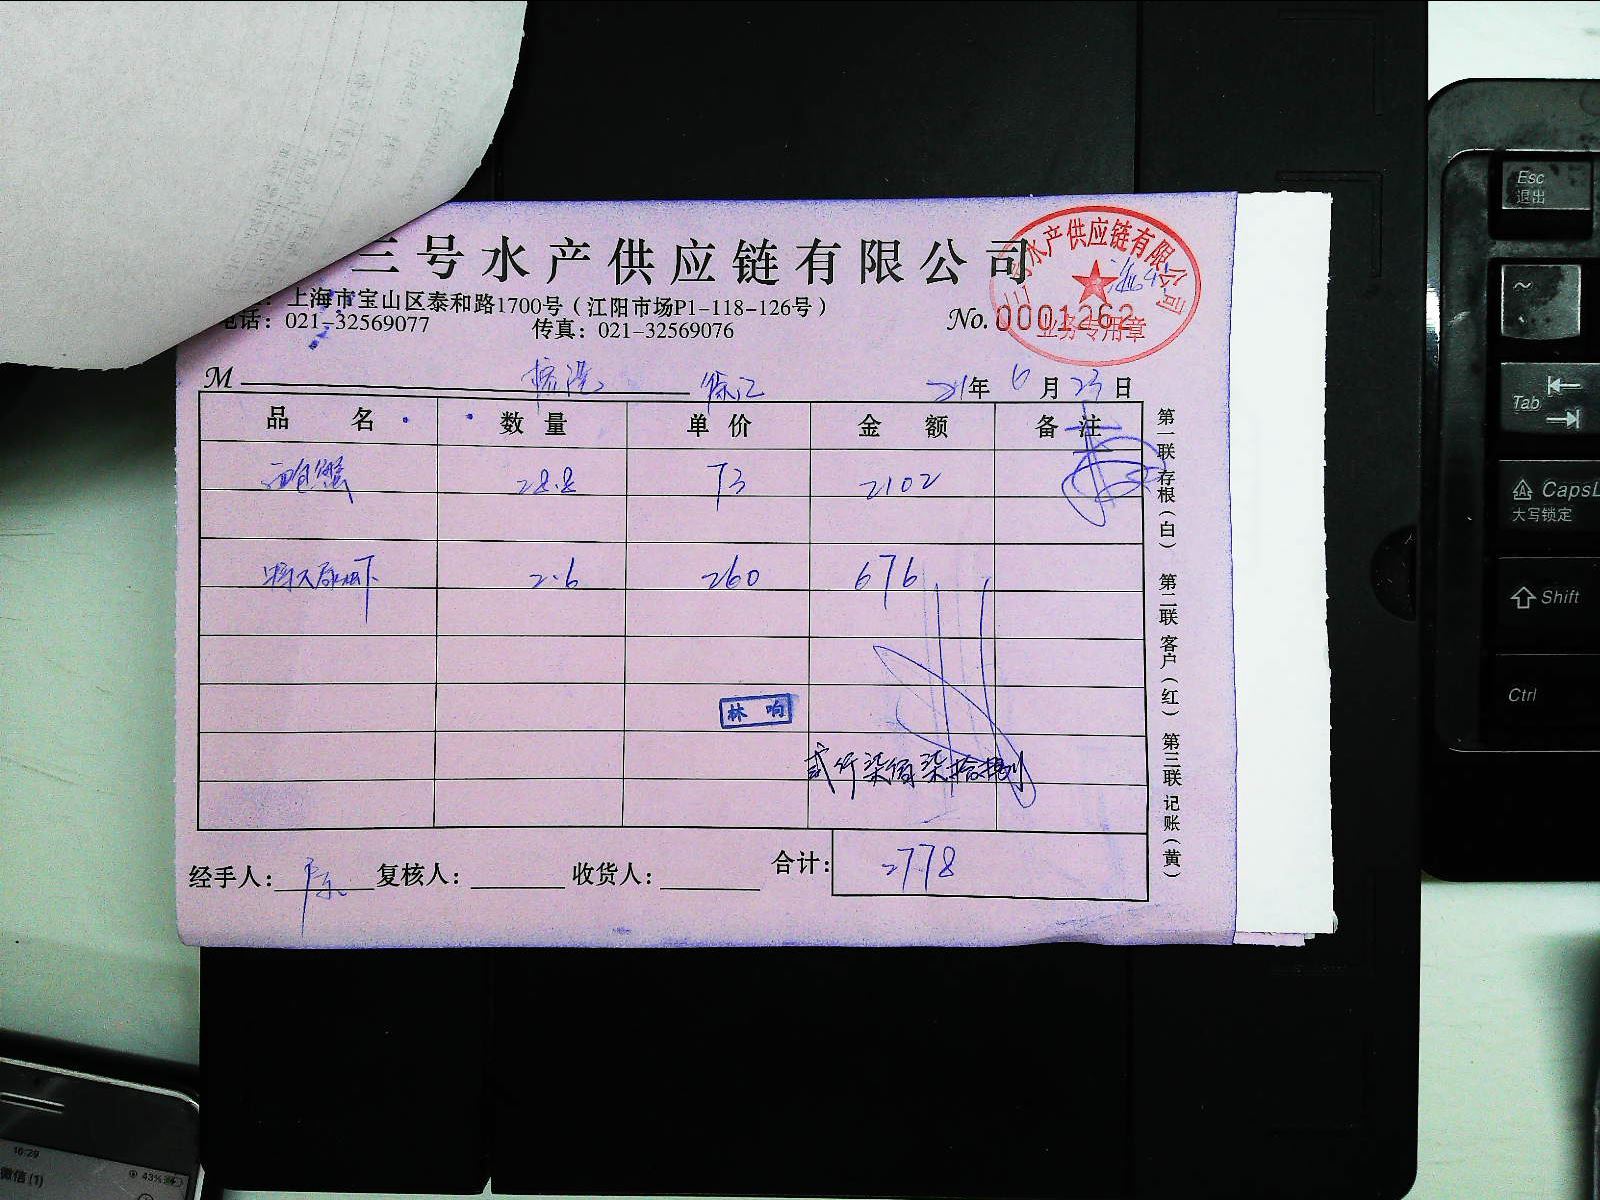 三号水产供应链有限公司
上海市宝山区泰和路1700号（江阳市场P1-118-126号）
电话：021-32569077 传真：021-32569076
No. 0001262
水产供应链有限公司
业务专用章
M 徐汇 21年 6月 23日
品名 数量 单价 金额 备注
面包蟹 28.8 73 2102
2.6 260 676
林响
贰仟柒佰柒拾捌
经手人： 复核人： 收货人： 合计：2778
第一联 存根（白） 第二联 客户（红） 第三联 记账（黄）
Esc
退出
~
Tab
CapsL
大写锁定
Shift
Ctrl
16:29
43%
微信(1)